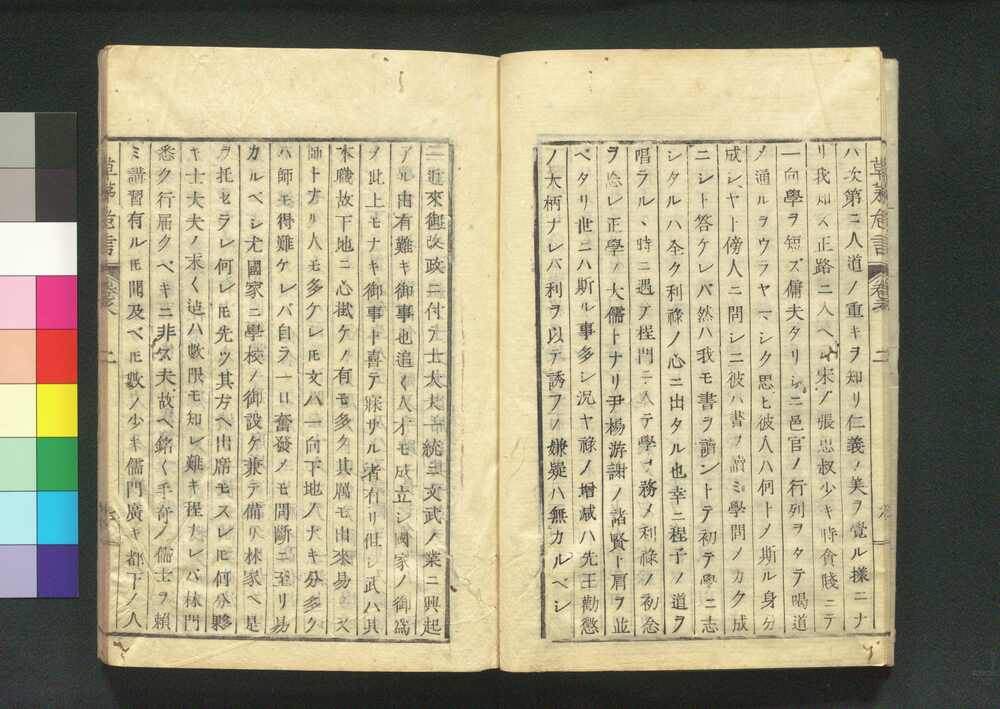 草茅危言
二
ハ次第ニ人道ノ重キヲ知リ仁義ノ美ヲ覺ル樣ニナ
リ我知ス正路ニ入ヘシ宋ノ張思叔少キ時貪賤ニテ
一向學ヲ短ズ傭夫タリシニ邑官ノ行列ヲタテ喝道
ノ通ルヲウラヤマシク思ヒ彼人ハ何トメ斯ル身分ニ
成シヤト傍人ニ問シニ彼ハ書ヲ讀ミ學問メカク成
ニシト答ケレバ然ハ我モ書ヲ讀ントテ初テ學ニ志
シタルハ全ク利祿ノ心ニ出タル也幸ニ程子ノ道ヲ
唱ラルヽ時ニ遇テ程門ニ入テ學ヲ務メ利祿ノ初念
ヲ忘レ正學ノ大儒トナリ尹楊游謝ノ諸賢ト肩ヲ並
ベタリ世ニハ斯ル事多シ況ヤ祿ノ增减ハ先王勸懲
ノ大柄ナレバ利ヲ以テ誘フノ嫌疑ハ無カルベシ
一近來御改政ニ付テ士大夫一統ニ文武ノ業ニ興起
了ル由有難キ御事也追〱人才モ成立シ國家ノ御爲
メ此上モナキ御事ト喜テ寐サル者有リ但シ武ハ其
本職故下地ニ心掛ケノ有モ多ク其厲モ出來易ク又
師トナリ人モ多ケレ𪜈文ハ一向下地ノナキ分多ク
ハ師モ得難ケレバ自ラ一旦奮發メモ間斷ニ至リ易
カルベシ尤國家ニ學校ノ御設ケ兼テ備リ林家ヘ是
ヲ托セラレ何レ𪜈先ツ其方ヘ出席モスレ𪜈何分夥
キ士大夫ノ末〱迠ハ數限モ知レ難キ程ナレバ林門
悉ク行届クベキニ非ス夫故ヘ銘〱手寄ノ儒士ヲ賴
ミ講習有ル𪜈聞及ベ𪜈數ノ少キ儒門廣キ都下ノ人
草茅危言
二